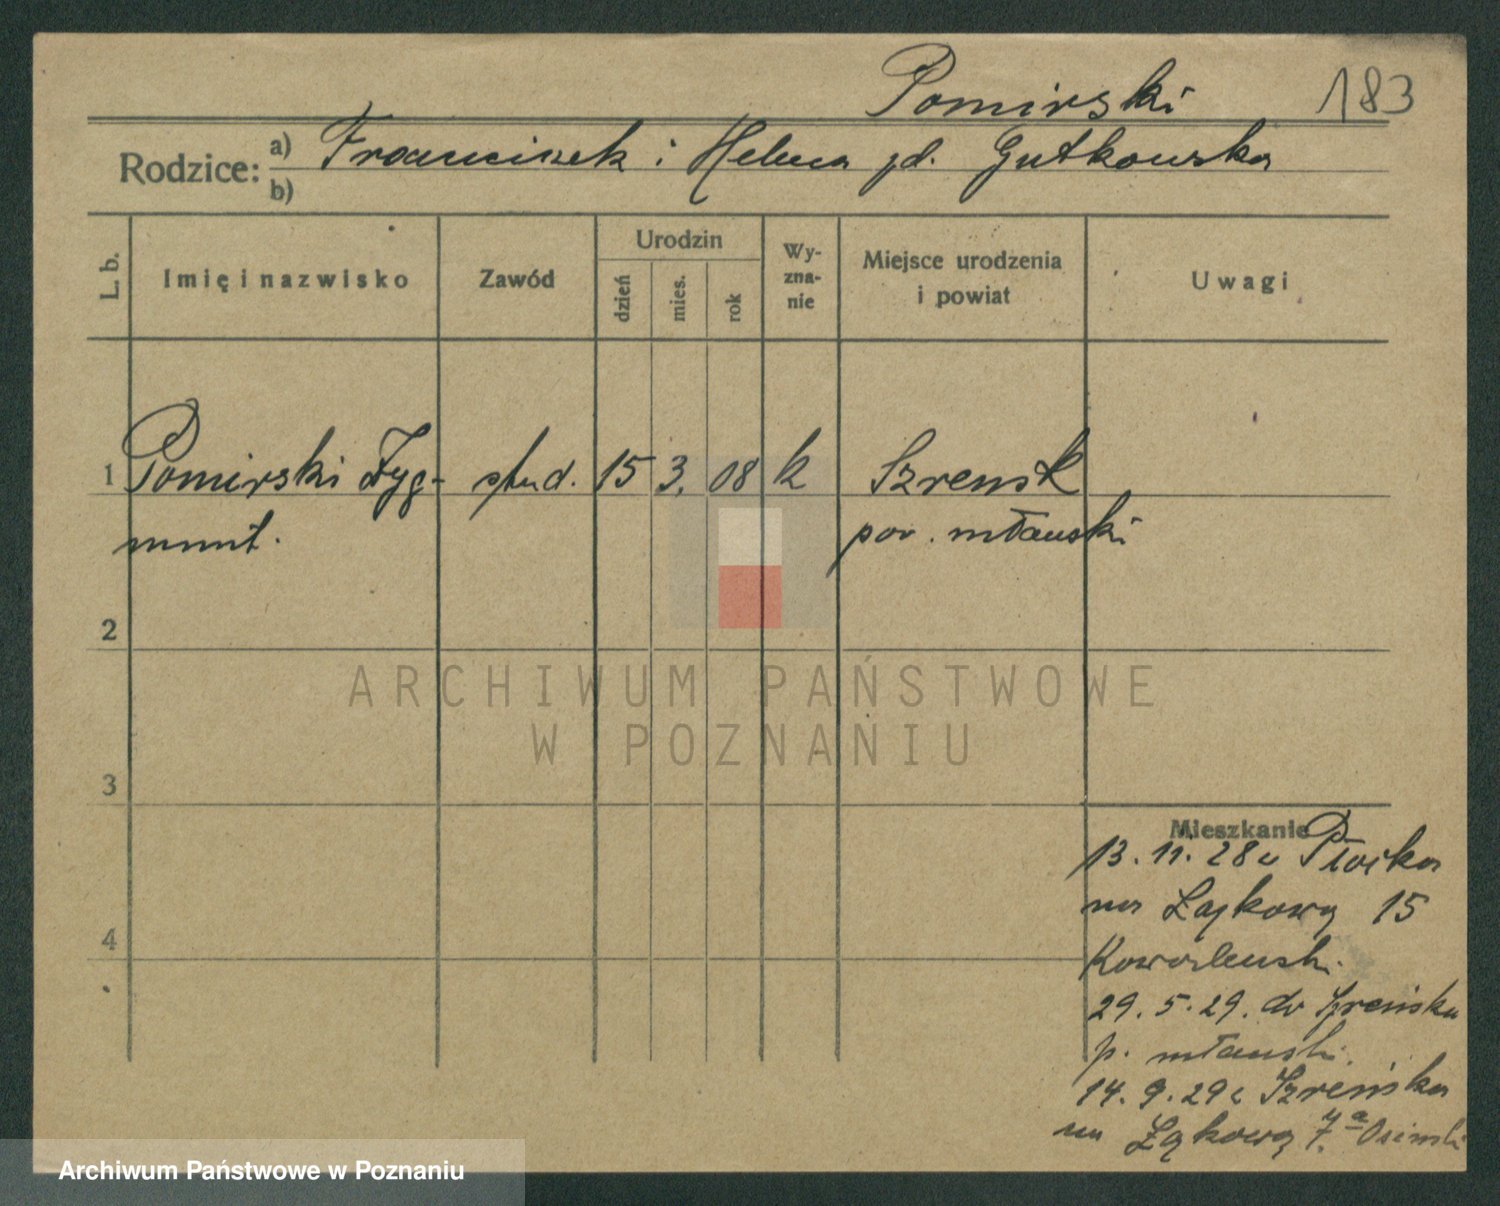 Pomirski 183
Rodzice: a) Franciszek i Helena zd. Gutkowska
b)
L. b. Imię i nazwisko Zawód Urodzin dzień mies. rok Wy-zna-nie Miejsce urodzenia i powiat Uwagi
1 Pomirski Zyg- stud. 15 3. 08 k Szrensk
munt. pow. mławski
2
ARCHIWUM PAŃSTWOWE
W POZNANIU
3
Mieszkanie
13. 11. 28 z Płocka
na Łąkową 15
4
29. 5. 29. do Szreńska
p. mławski.
14. 9. 29 z Szreńska
na Łąkową
Archiwum Państwowe w Poznaniu